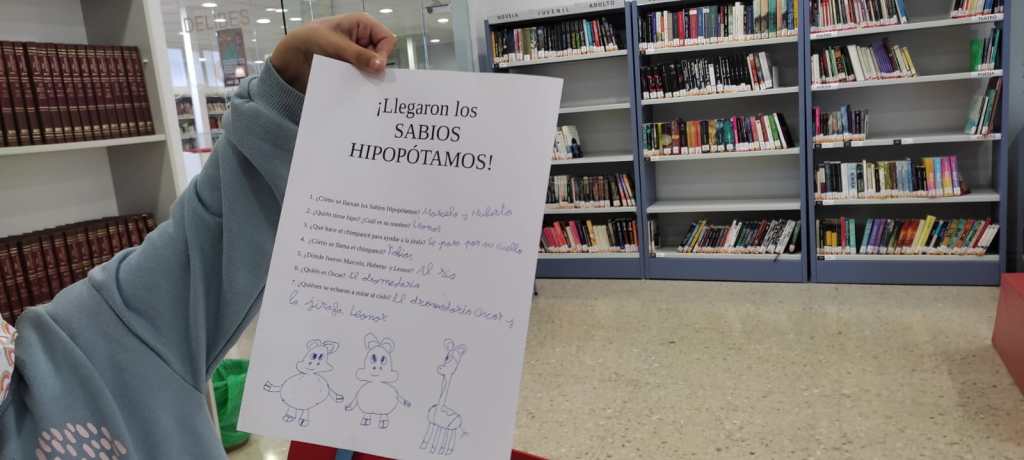 NOVELA JUVENIL ADULTO
¡Llegaron los
SABIOS
HIPOPÓTAMOS!
1. ¿Cómo se llaman los Sabios Hipopótamos? Marcelo y Huberto
2. ¿Quién tiene hipo? ¿Cuál es su nombre? Leonor
3. ¿Qué hace el chimpancé para ayudar a la jirafa? Se pasea por su cuello
4. ¿Cómo se llama el chimpancé? Tobías
5. ¿Dónde fueron Marcelo, Huberto y Leonor? Al río
6. ¿Quién es Oscar? El dromedario
7. ¿Quiénes se echaron a mirar al cielo? El dromedario Oscar y
la jirafa Leonor